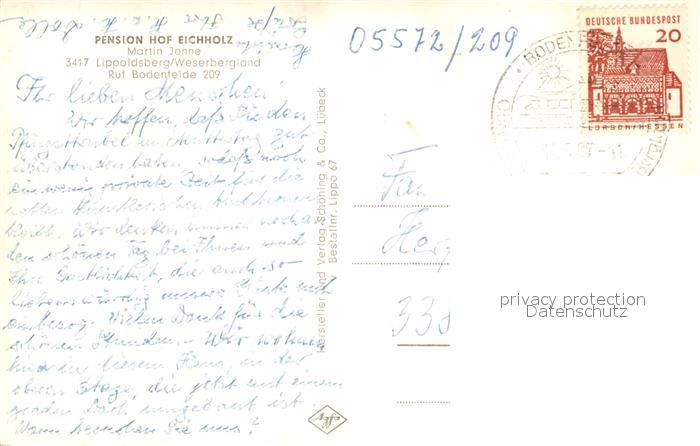 PENSION HOF EICHHOLZ
Martin Jenne
3417 Lippoldsberg/Weserbergland
Ruf Bodenfelde 209
05572/209
DEUTSCHE BUNDESPOST
20
LORSCH/HESSEN
BODENFE
Ihr lieben Menschen!
Wir hoffen, daß Sie den
Pfingsttrubel u. Muttertag gut
überstanden haben, sodaß noch
ein wenig private Zeit für die
netten künstlerischen Ambitionen
bleibt. Wir denken immer noch an
den schönen Tag bei Ihnen und
Ihre Gastlichkeit, die auch so
liebenswürdig unsere Gäste mit
einbezog. Vielen Dank für die
schönen Stunden. - Wir wohnen
hier in diesem Haus, in der
oberen Etage, die jetzt mit einem
geraden Dach umgebaut ist.
Wann besuchen Sie uns?
Herzliche
Grüße Ihre
Hersteller und Verlag Schöning & Co., Lübeck
Bestellnr. Lippo 67
Agfa
Herz
338
privacy protection
Datenschutz